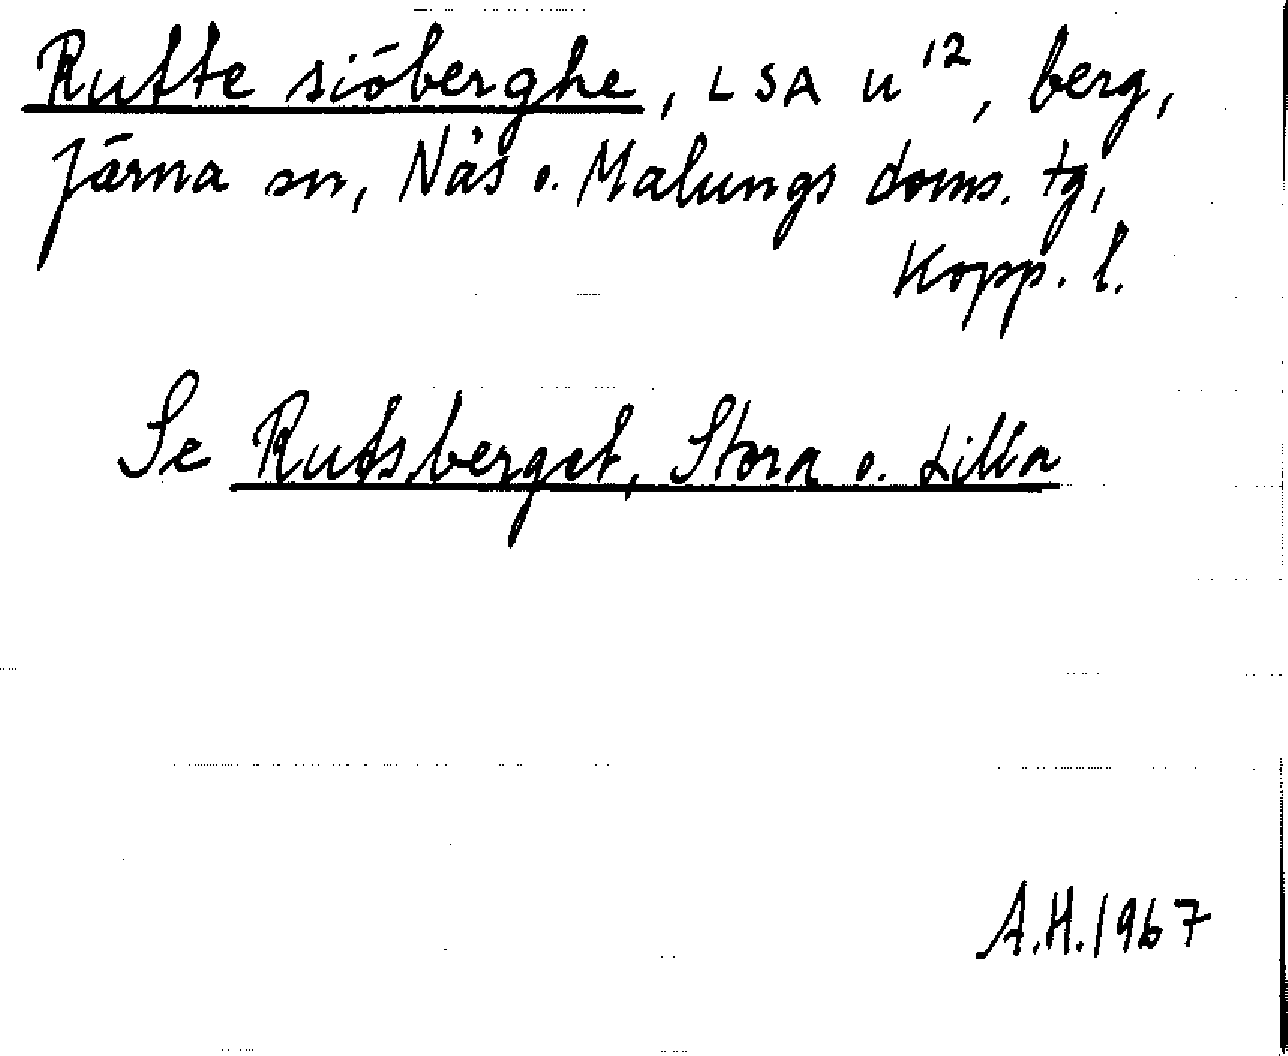 Rutte siöberghe, LSA u¹², berg,
Järna sn, Nås o. Malungs doms. tg,
Kopp. l.
Se Rutsberget, Stora o. Lilla
A.H.1967